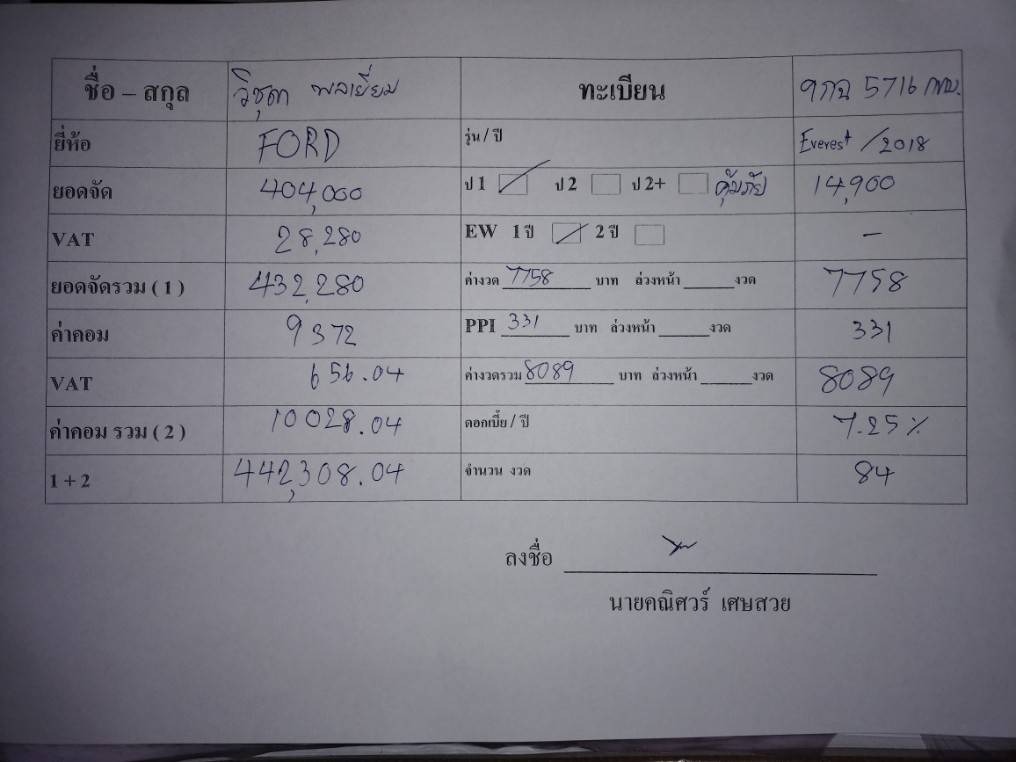 ชื่อ – สกุล วิชุดา พลเยี่ยม ทะเบียน 9กฉ 5716 กทม.
ยี่ห้อ FORD รุ่น / ปี Everest / 2018
ยอดจัด 404,000 ป 1 ป 2 ป 2+ คุ้มภัย 14,900
VAT 28,280 EW 1 ปี 2 ปี –
ยอดจัดรวม ( 1 ) 432,280 ค่างวด 7758 บาท ล่วงหน้า ______งวด 7758
ค่าคอม 9372 PPI 331 บาท ล่วงหน้า ______งวด 331
VAT 656.04 ค่างวดรวม 8089 บาท ล่วงหน้า ______งวด 8089
ค่าคอม รวม ( 2 ) 10028.04 ดอกเบี้ย / ปี 7.25%
1 + 2 442,308.04 จำนวน งวด 84
ลงชื่อ
นายคณิศวร์ เศษสวย